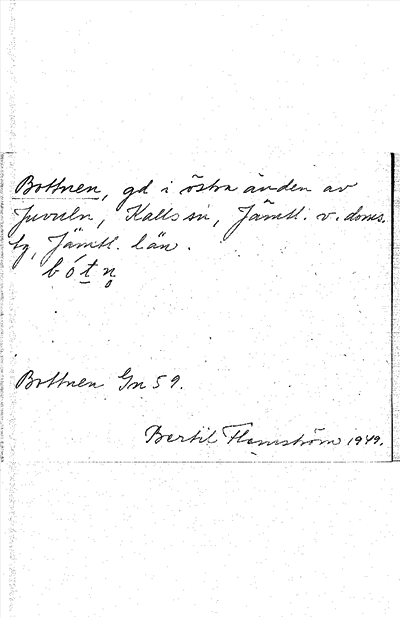 Bottnen, gd i östra änden av
Juvuln, Kalls sn, Jämtl. v. doms.
tg, Jämtl. län.
bótn̥
Bottnen Gn 59.
Bertil Flemström 1949.